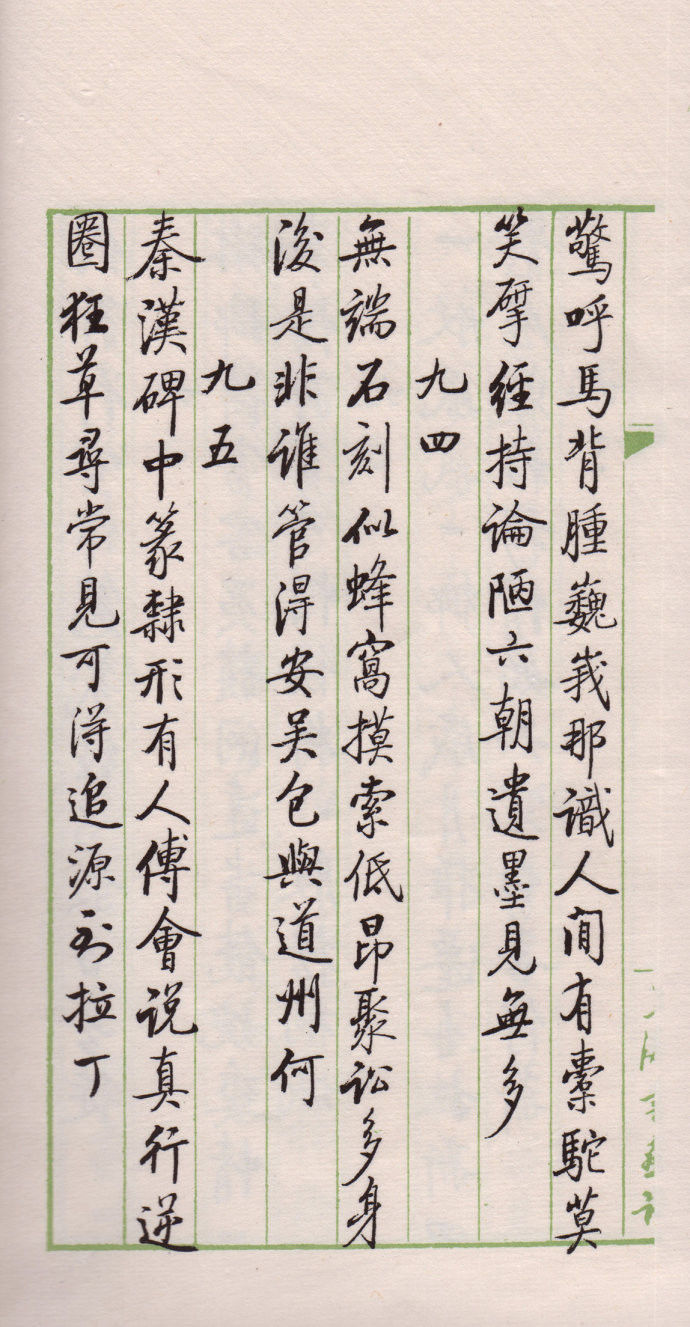 驚呼馬背腫巍峩那識人間有橐駝莫
笑擘經持論陋六朝遺墨見無多
九四
無端石刻似蜂窩摸索低昂聚訟多身
後是非誰管得安吴包與道州何
九五
秦漢碑中篆隸形有人傅會说真行逆
圈狂草尋常見可得追源到拉丁